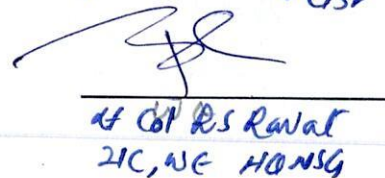 Lt Col RS Rawat
2IC, WE HQ NSG